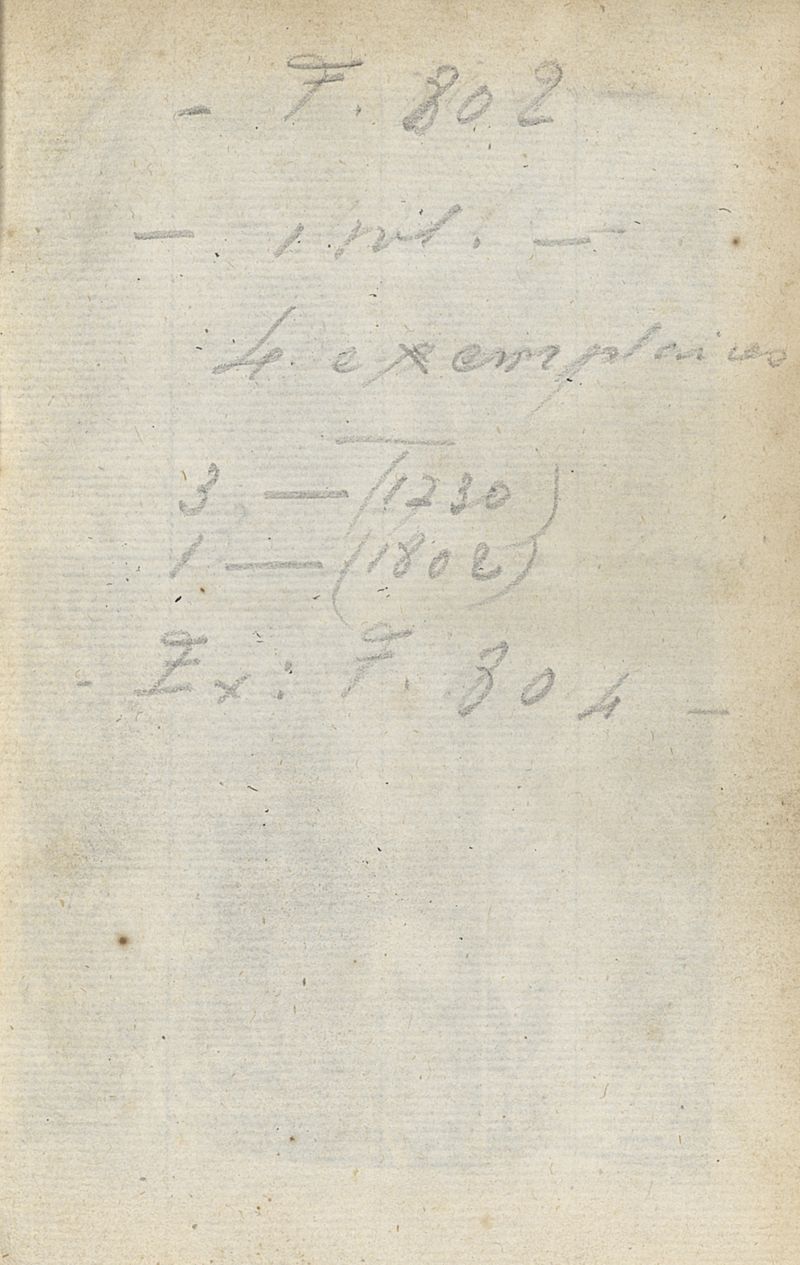 - F. 802 -
- 1 vol. -
4 exemplaires
3 — (1730)
1 — (1802)
- Ex: F. 804 -